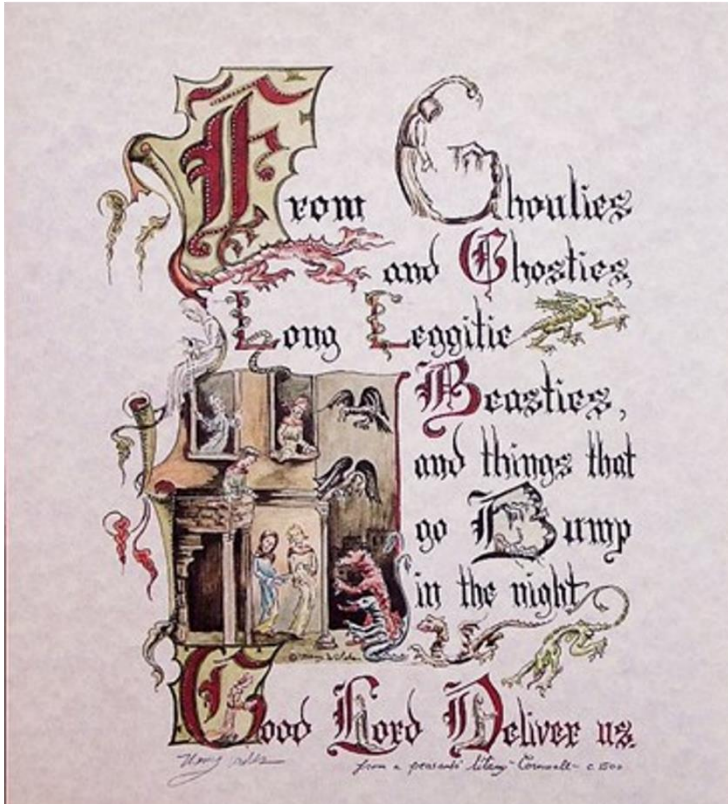 From Ghoulies
and Ghosties,
Long Leggitie
Beasties,
and things that
go Bump
in the night
Good Lord Deliver us.
from a peasants' litany - Cornwall - c. 1500